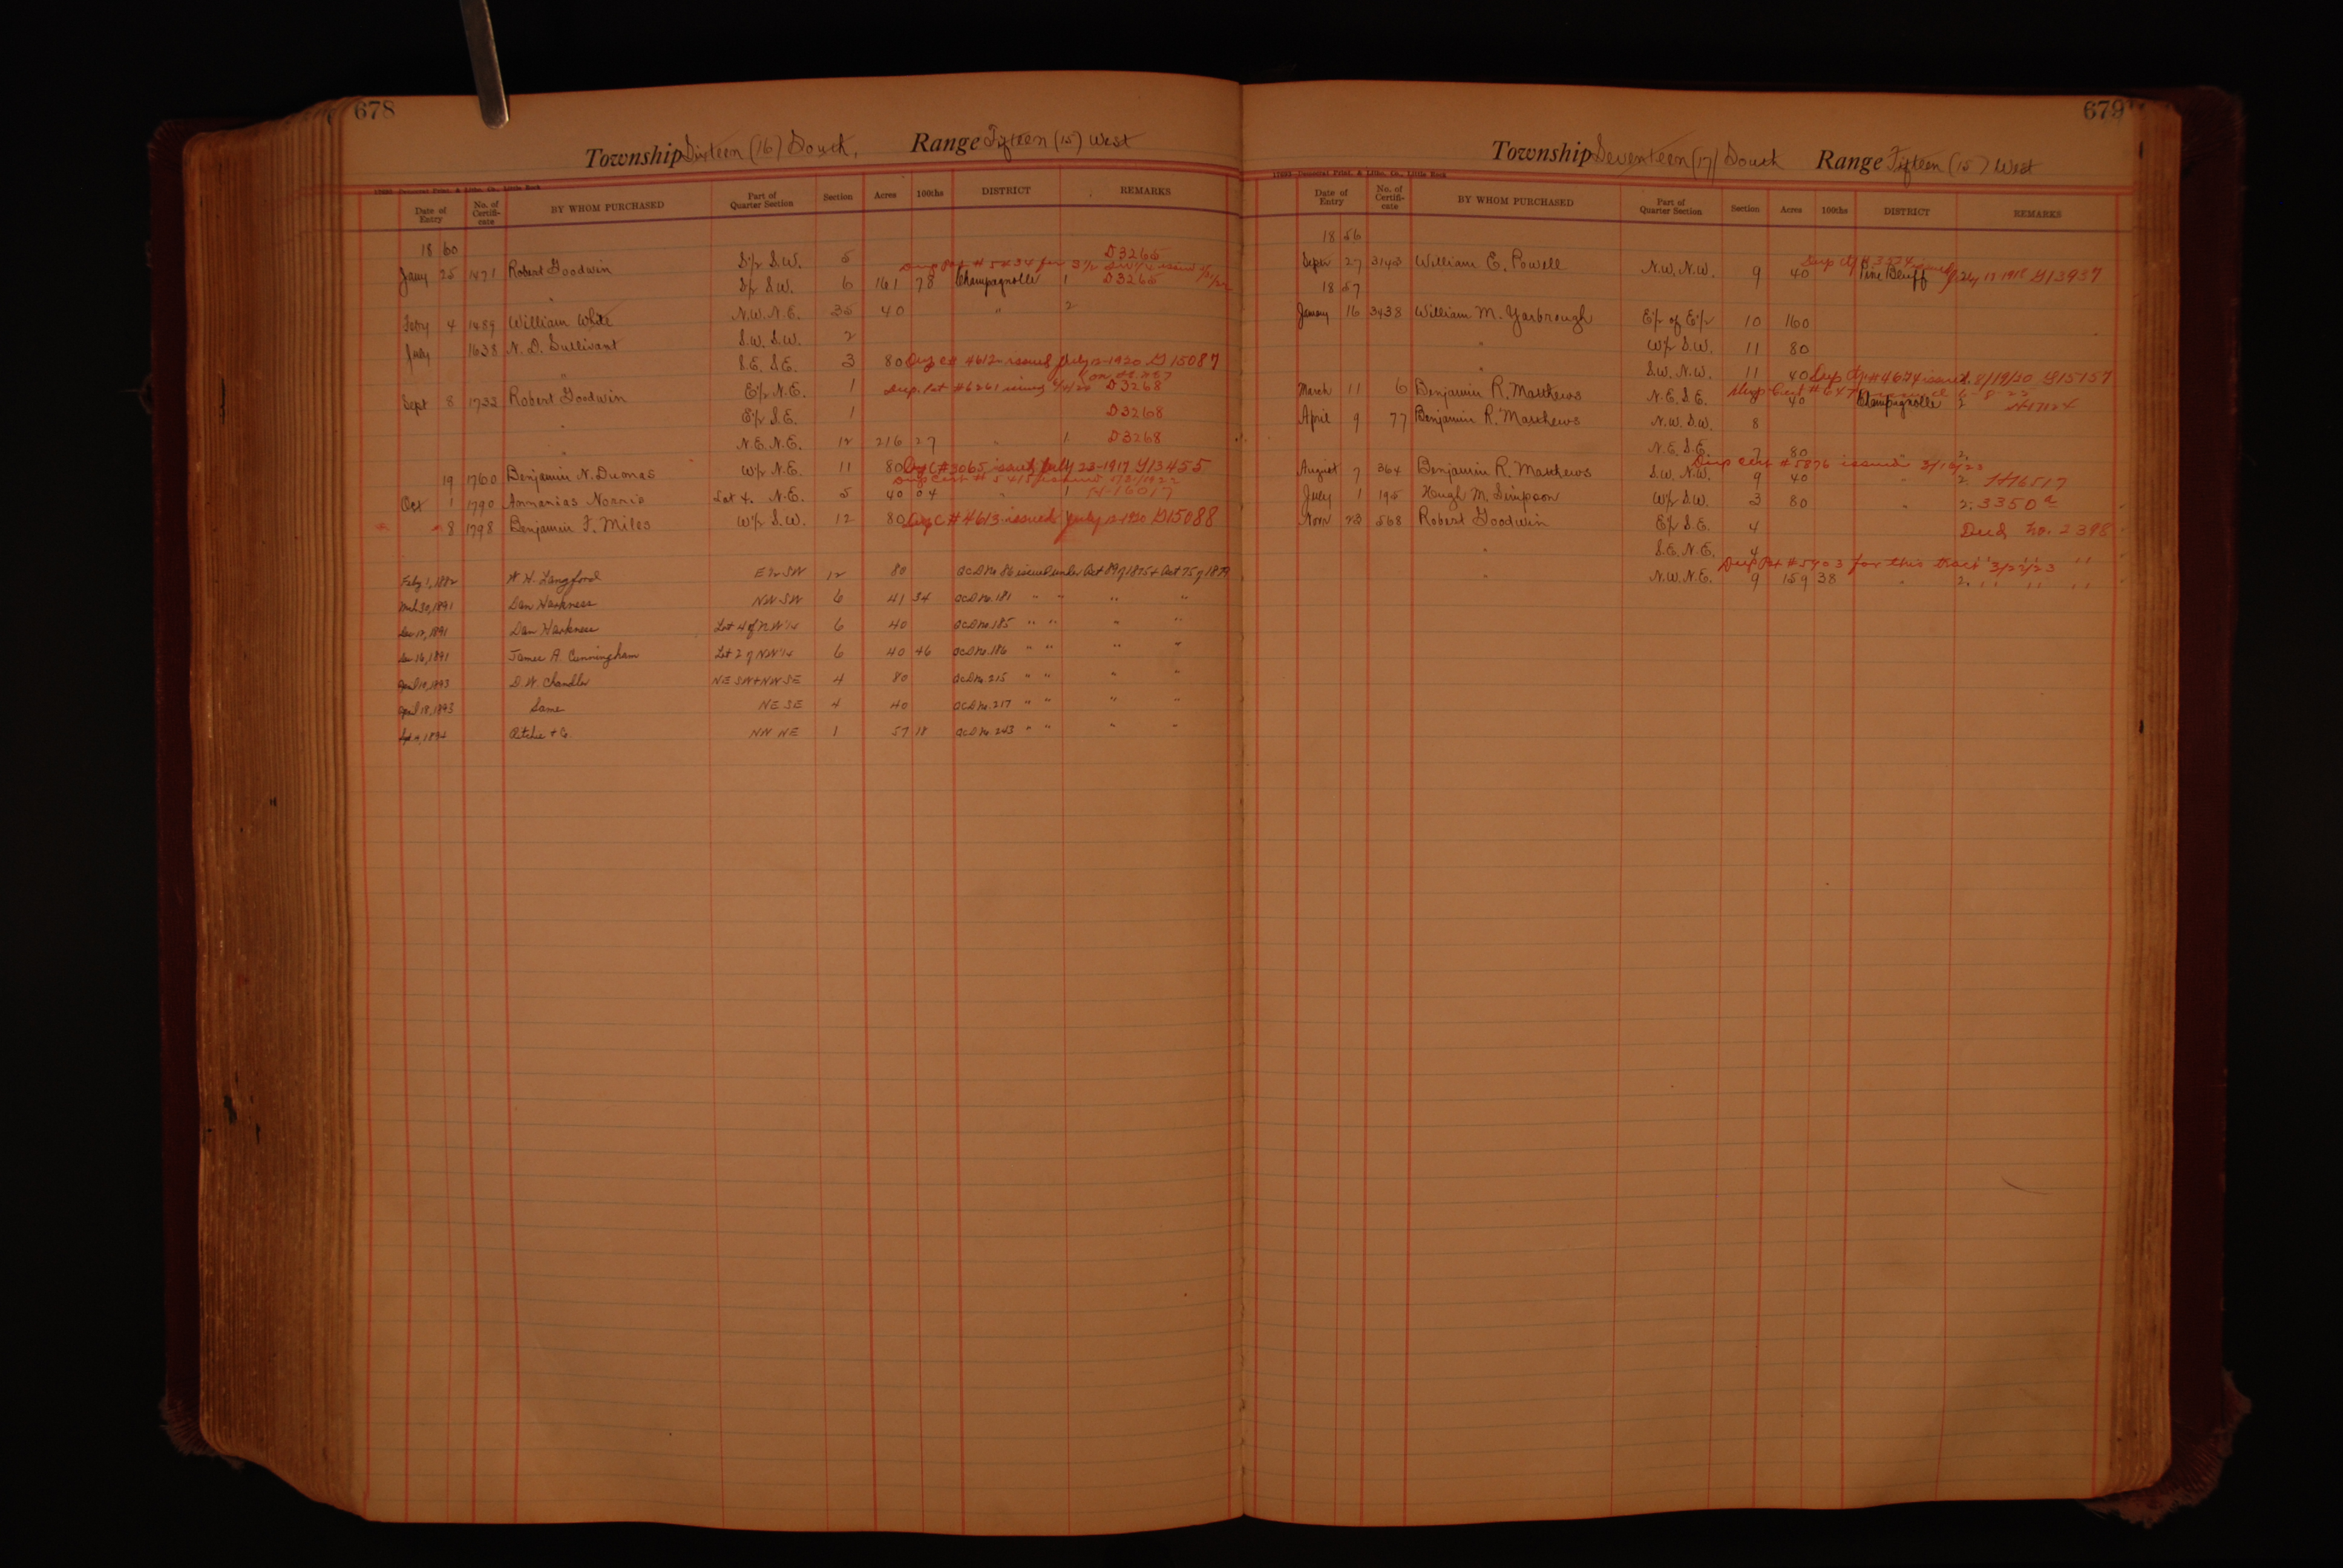 678
Township Sixteen (16) South, Range Fifteen (15) West
Date of Entry No. of Certifi-cate BY WHOM PURCHASED Part of Quarter Section Section Acres 100ths DISTRICT REMARKS
18 60
D3265
Jany 25 1471 Robert Goodwin S½ S.W. 5
" S½ S.W. 6 161 78 Champagnolle 1 D3265
Feby 4 1489 William White N.W. N.E. 35 40 " 2
July 1638 N. D. Sullivant S.W. S.W. 2
" S.E. S.E. 3 80 Dup Cf 4612 issued July 12-1920 G 15087
Sept 8 1733 Robert Goodwin E½ N.E. 1 Dup. Pat #6261 D3268
" E½ S.E. 1 D3268
" N.E. N.E. 12 216 27 " 1 D3268
19 1760 Benjamin N. Dumas W½ N.E. 11 80 Dup C#3065 issued July 23-1917 G13455
Oct 1 1790 Annanias Norris Lot 4. N.E. 5 40 04 " 1 H-16017
" 8 1798 Benjamin F. Miles W½ S.W. 12 80 Dup C#4613 issued July 12-1920 G15088
Feby 1, 1882 W. H. Langford E½ SW 12 80 QCD No 86 issued under Act 89 of 1875 & Act 75 of 1879
Mch 30, 1891 Dan Harkness NW SW 6 41 34 QCD No. 181 " " " "
1891 Dan Harkness Lot 4 of NW¼ 6 40 QCD No. 185 " " " "
16, 1891 James A. Cunningham Lot 2 of NW¼ 6 40 46 QCD No. 186 " " " "
April 10, 1893 D. W. Chandler NE SW & NW SE 4 80 QCD No. 215 " " " "
April 18, 1893 Same NE SE 4 40 QCD No. 217 " " " "
1894 Ritchie & Co. NW NE 1 57 18 QCD No 243 " " " "
679
Township Seventeen (17) South Range Fifteen (15) West
Date of Entry No. of Certifi-cate BY WHOM PURCHASED Part of Quarter Section Section Acres 100ths DISTRICT REMARKS
18 56
Septr 27 3143 William E. Powell N.W. N.W. 9 40 Pine Bluff G13937
18 57
January 16 3438 William M. Yarbrough E½ of E½ 10 160
" W½ S.W. 11 80
" S.W. N.W. 11 40 Dup Cf #4674 issued 8/19/20 G15157
March 11 6 Benjamin R. Matthews N.E. S.E. 40 Champagnolle 2
April 9 77 Benjamin R. Matthews N.W. S.W. 8
N.E. S.E. 7 80 " 2.
Dup Cert #5876 issued
August 7 364 Benjamin R. Matthews S.W. N.W. 9 40 " 2 H16517
July 1 195 Hugh M. Simpson W½ S.W. 3 80 " 2; 3350 a
Novr 23 568 Robert Goodwin E½ S.E. 4 Deed No. 2398
" S.E. N.E. 4 " " "
Dup Pat #5903 for this tract 3/23/23
" N.W. N.E. 9 159 38 " 2. " " "